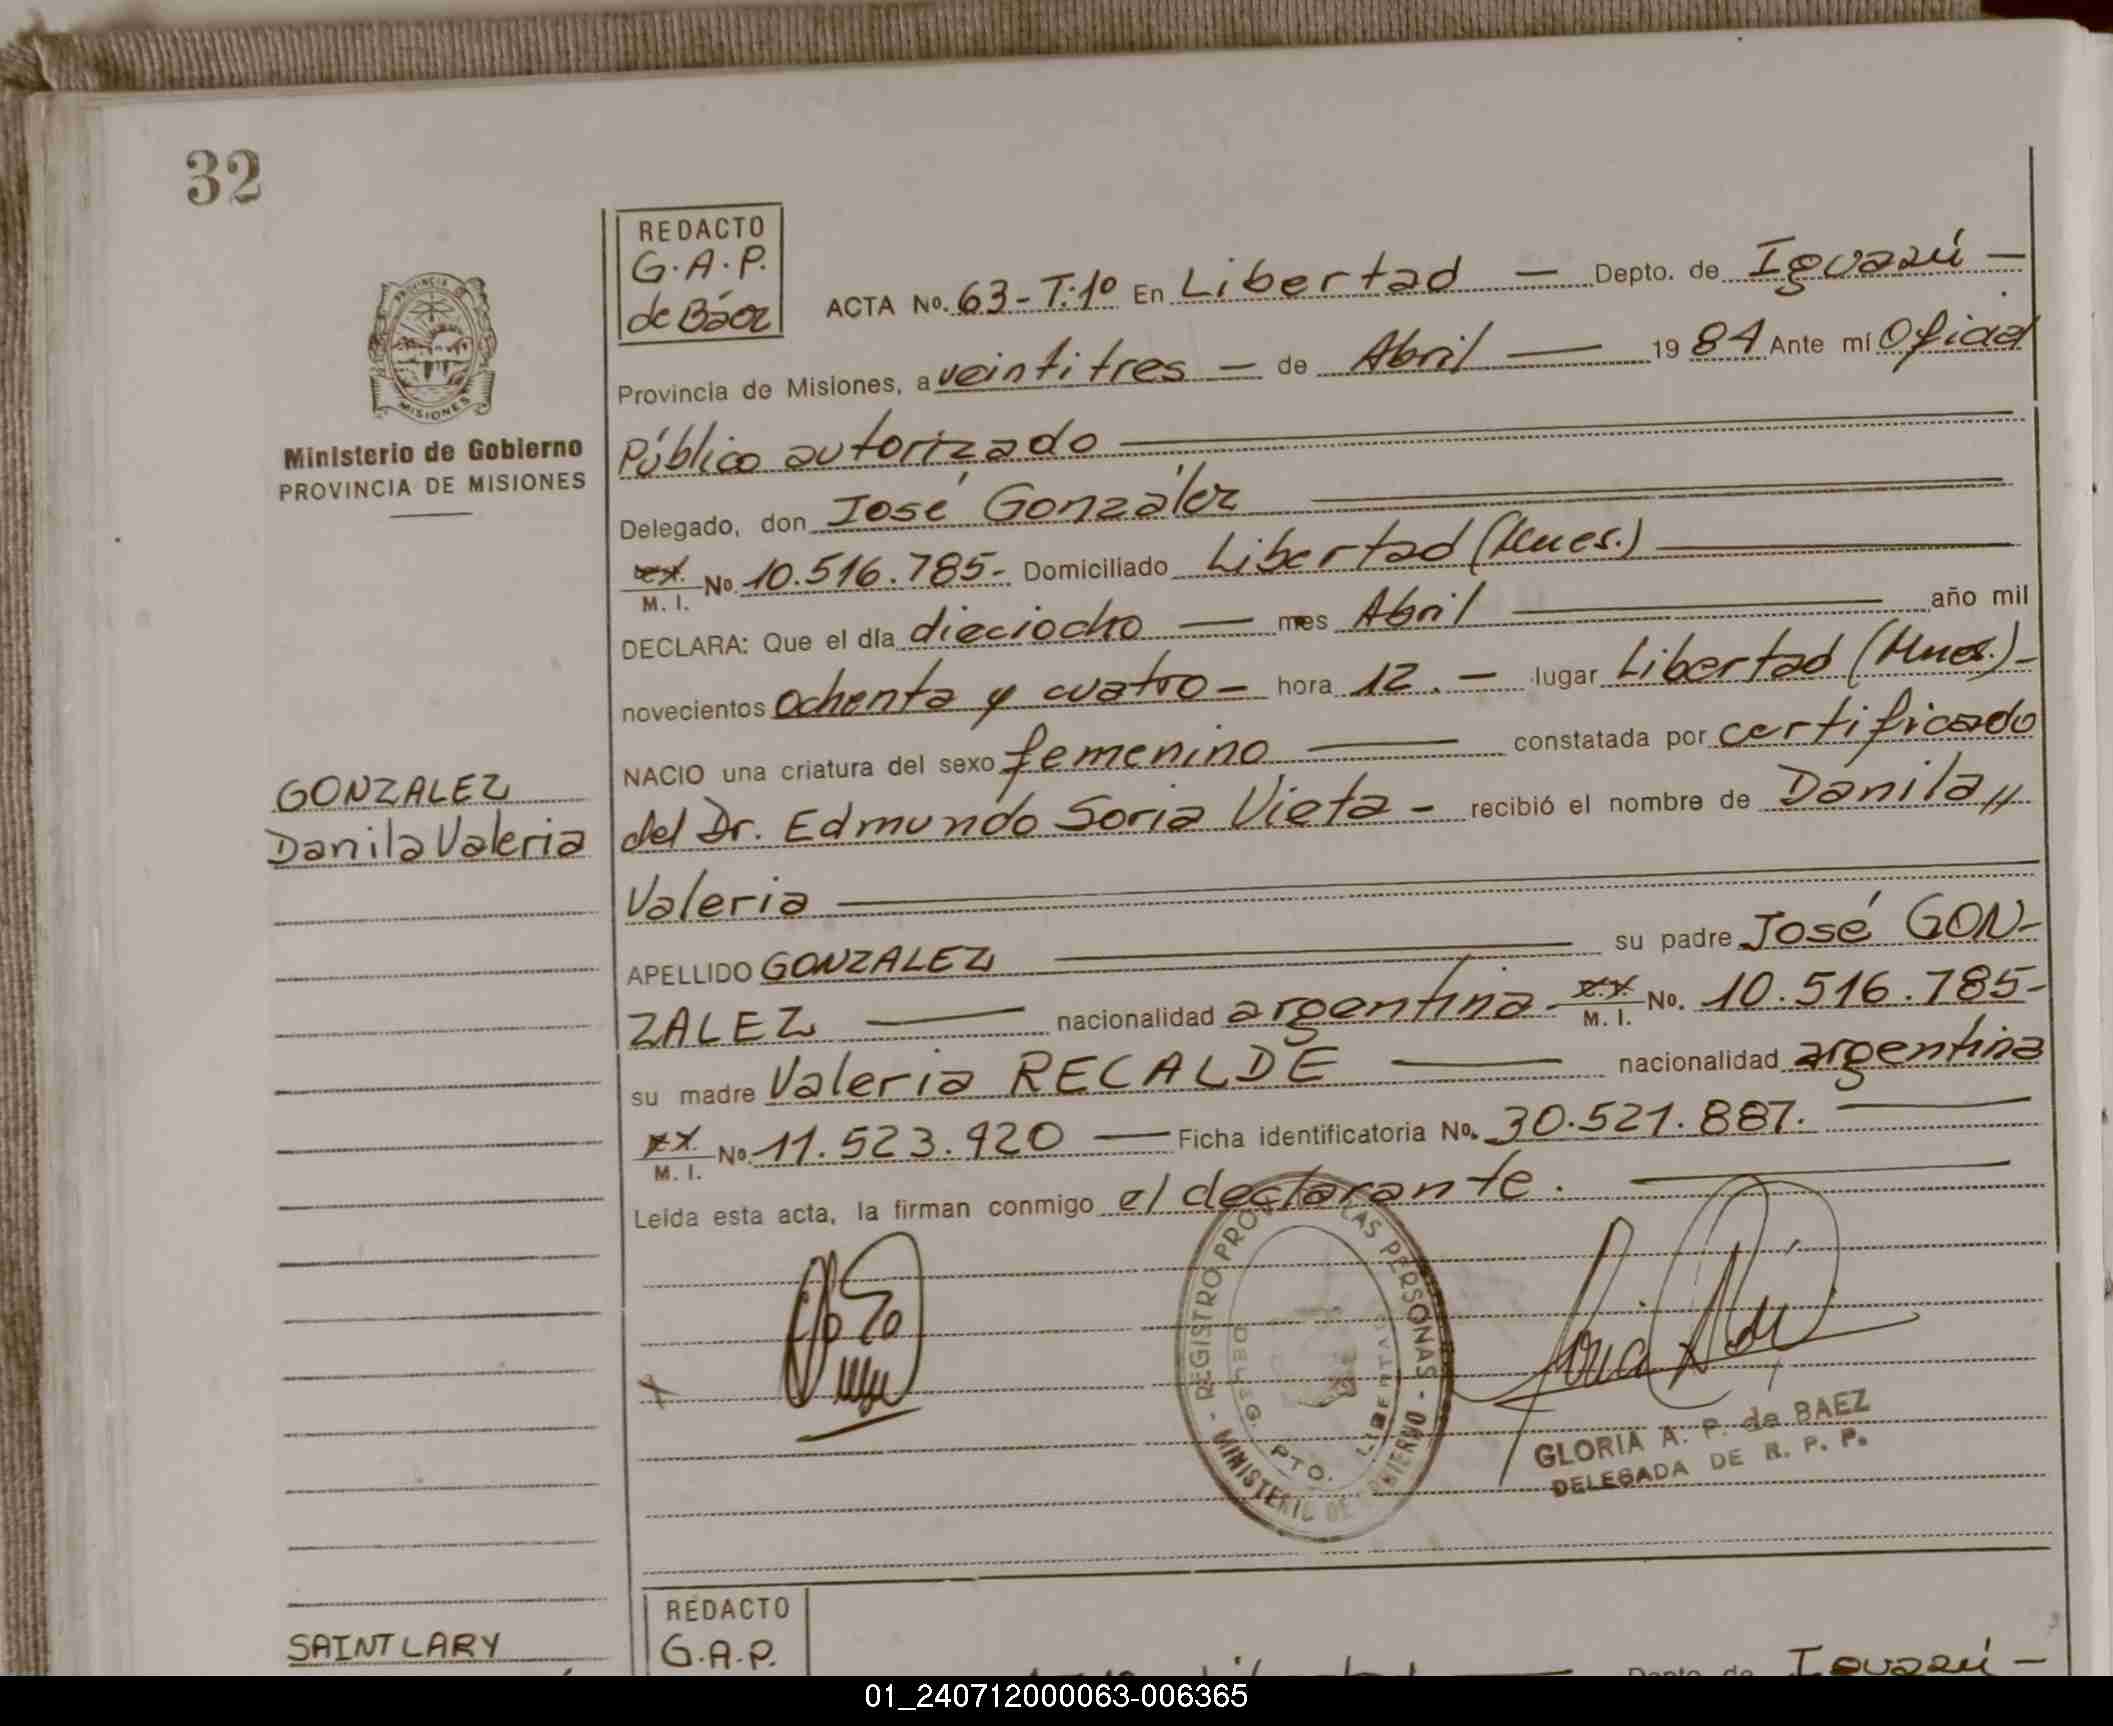 32
PROVINCIA DE
MISIONES
Ministerio de Gobierno
PROVINCIA DE MISIONES
GONZALEZ
Danila Valeria
REDACTO
G.A.P.
de Báez
ACTA No. 63-T:1º En Libertad — Depto. de Iguazú —
Provincia de Misiones, a veintitres — de Abril — 1984 Ante mí Oficial
Público autorizado
Delegado, don José González
M. I. No. 10.516.785- Domiciliado Libertad (Mnes.)
DECLARA: Que el día dieciocho — mes Abril — año mil
novecientos ochenta y cuatro - hora 12. — lugar Libertad (Mnes.) -
NACIO una criatura del sexo femenino — constatada por certificado
del Dr. Edmundo Soria Vieta - recibió el nombre de Danila,,
Valeria
APELLIDO GONZALEZ — su padre José GON-
ZALEZ — nacionalidad argentina - M. I. No. 10.516.785-
su madre Valeria RECALDE — nacionalidad argentina
M. I. No. 11.523.920 — Ficha identificatoria No. 30.521.887. —
Leída esta acta, la firman conmigo el declarante. —
REGISTRO PROV LAS PERSONAS - MINISTERIO DE GOBIERNO -
DELEG. PTO. LIBERTAD
GLORIA A. P. de BAEZ
DELEGADA DE R. P. P.
SAINTLARY
REDACTO
G.A.P.
Depto. de Iguazú —
01_240712000063-006365